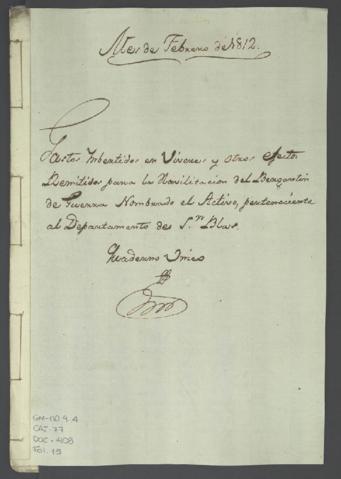 Mes de Febrero de 1812.
Gastos Imbertidos en Viveres y otros efectos
Remitidos para la Havilitacion del Bergantin
de Guerra Nombrado el Activo, perteneciente
al Departamento de S.n Blas.
Quaderno Unico
GM-110.4.4
CAJ-77
DOC-408
Fol. 19